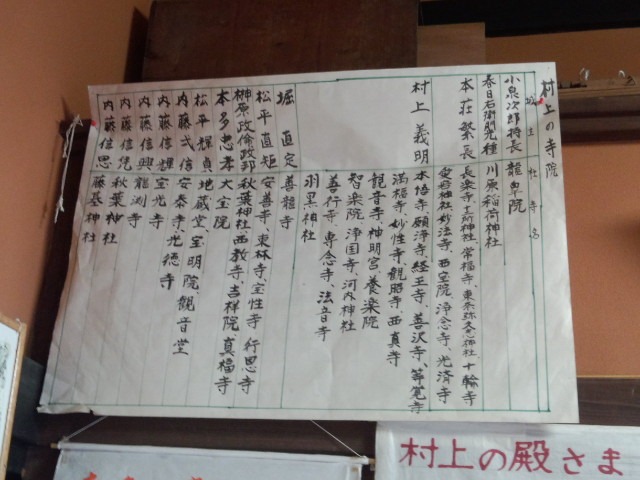 村上の寺院
城主 社寺名
小泉次郎持長 龍皐院
春日右衛門元種 川原稲荷神社
本荘繁長 長楽寺、
常福寺、
十輪寺
愛宕神社、妙法寺、西宝院、浄念寺、光済寺
村上義明 本悟寺、願浄寺、経王寺、善沢寺、
満福寺、妙性寺、観照寺、西真寺
観音寺、神明宮、養楽院
智楽院、浄国寺、河内神社
善行寺、専念寺、法音寺
羽黒神社
堀直定 善龍寺
松平直矩 安善寺、東林寺、宝性寺、行恩寺
榊原政倫政邦 秋葉神社、西教寺、吉祥院、真福寺
本多忠孝 大宝院
松平輝貞 地蔵堂、宝明院、観音堂
内藤弌信 安泰寺、光徳寺
内藤信輝 宝光寺
内藤信興 龍渕寺
内藤信凭 秋葉神社
内藤信思 藤基神社
村上の殿さま